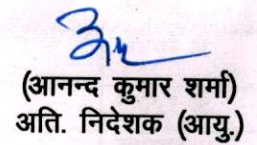 (आनन्द कुमार शर्मा)
अति. निदेशक (आयु.)